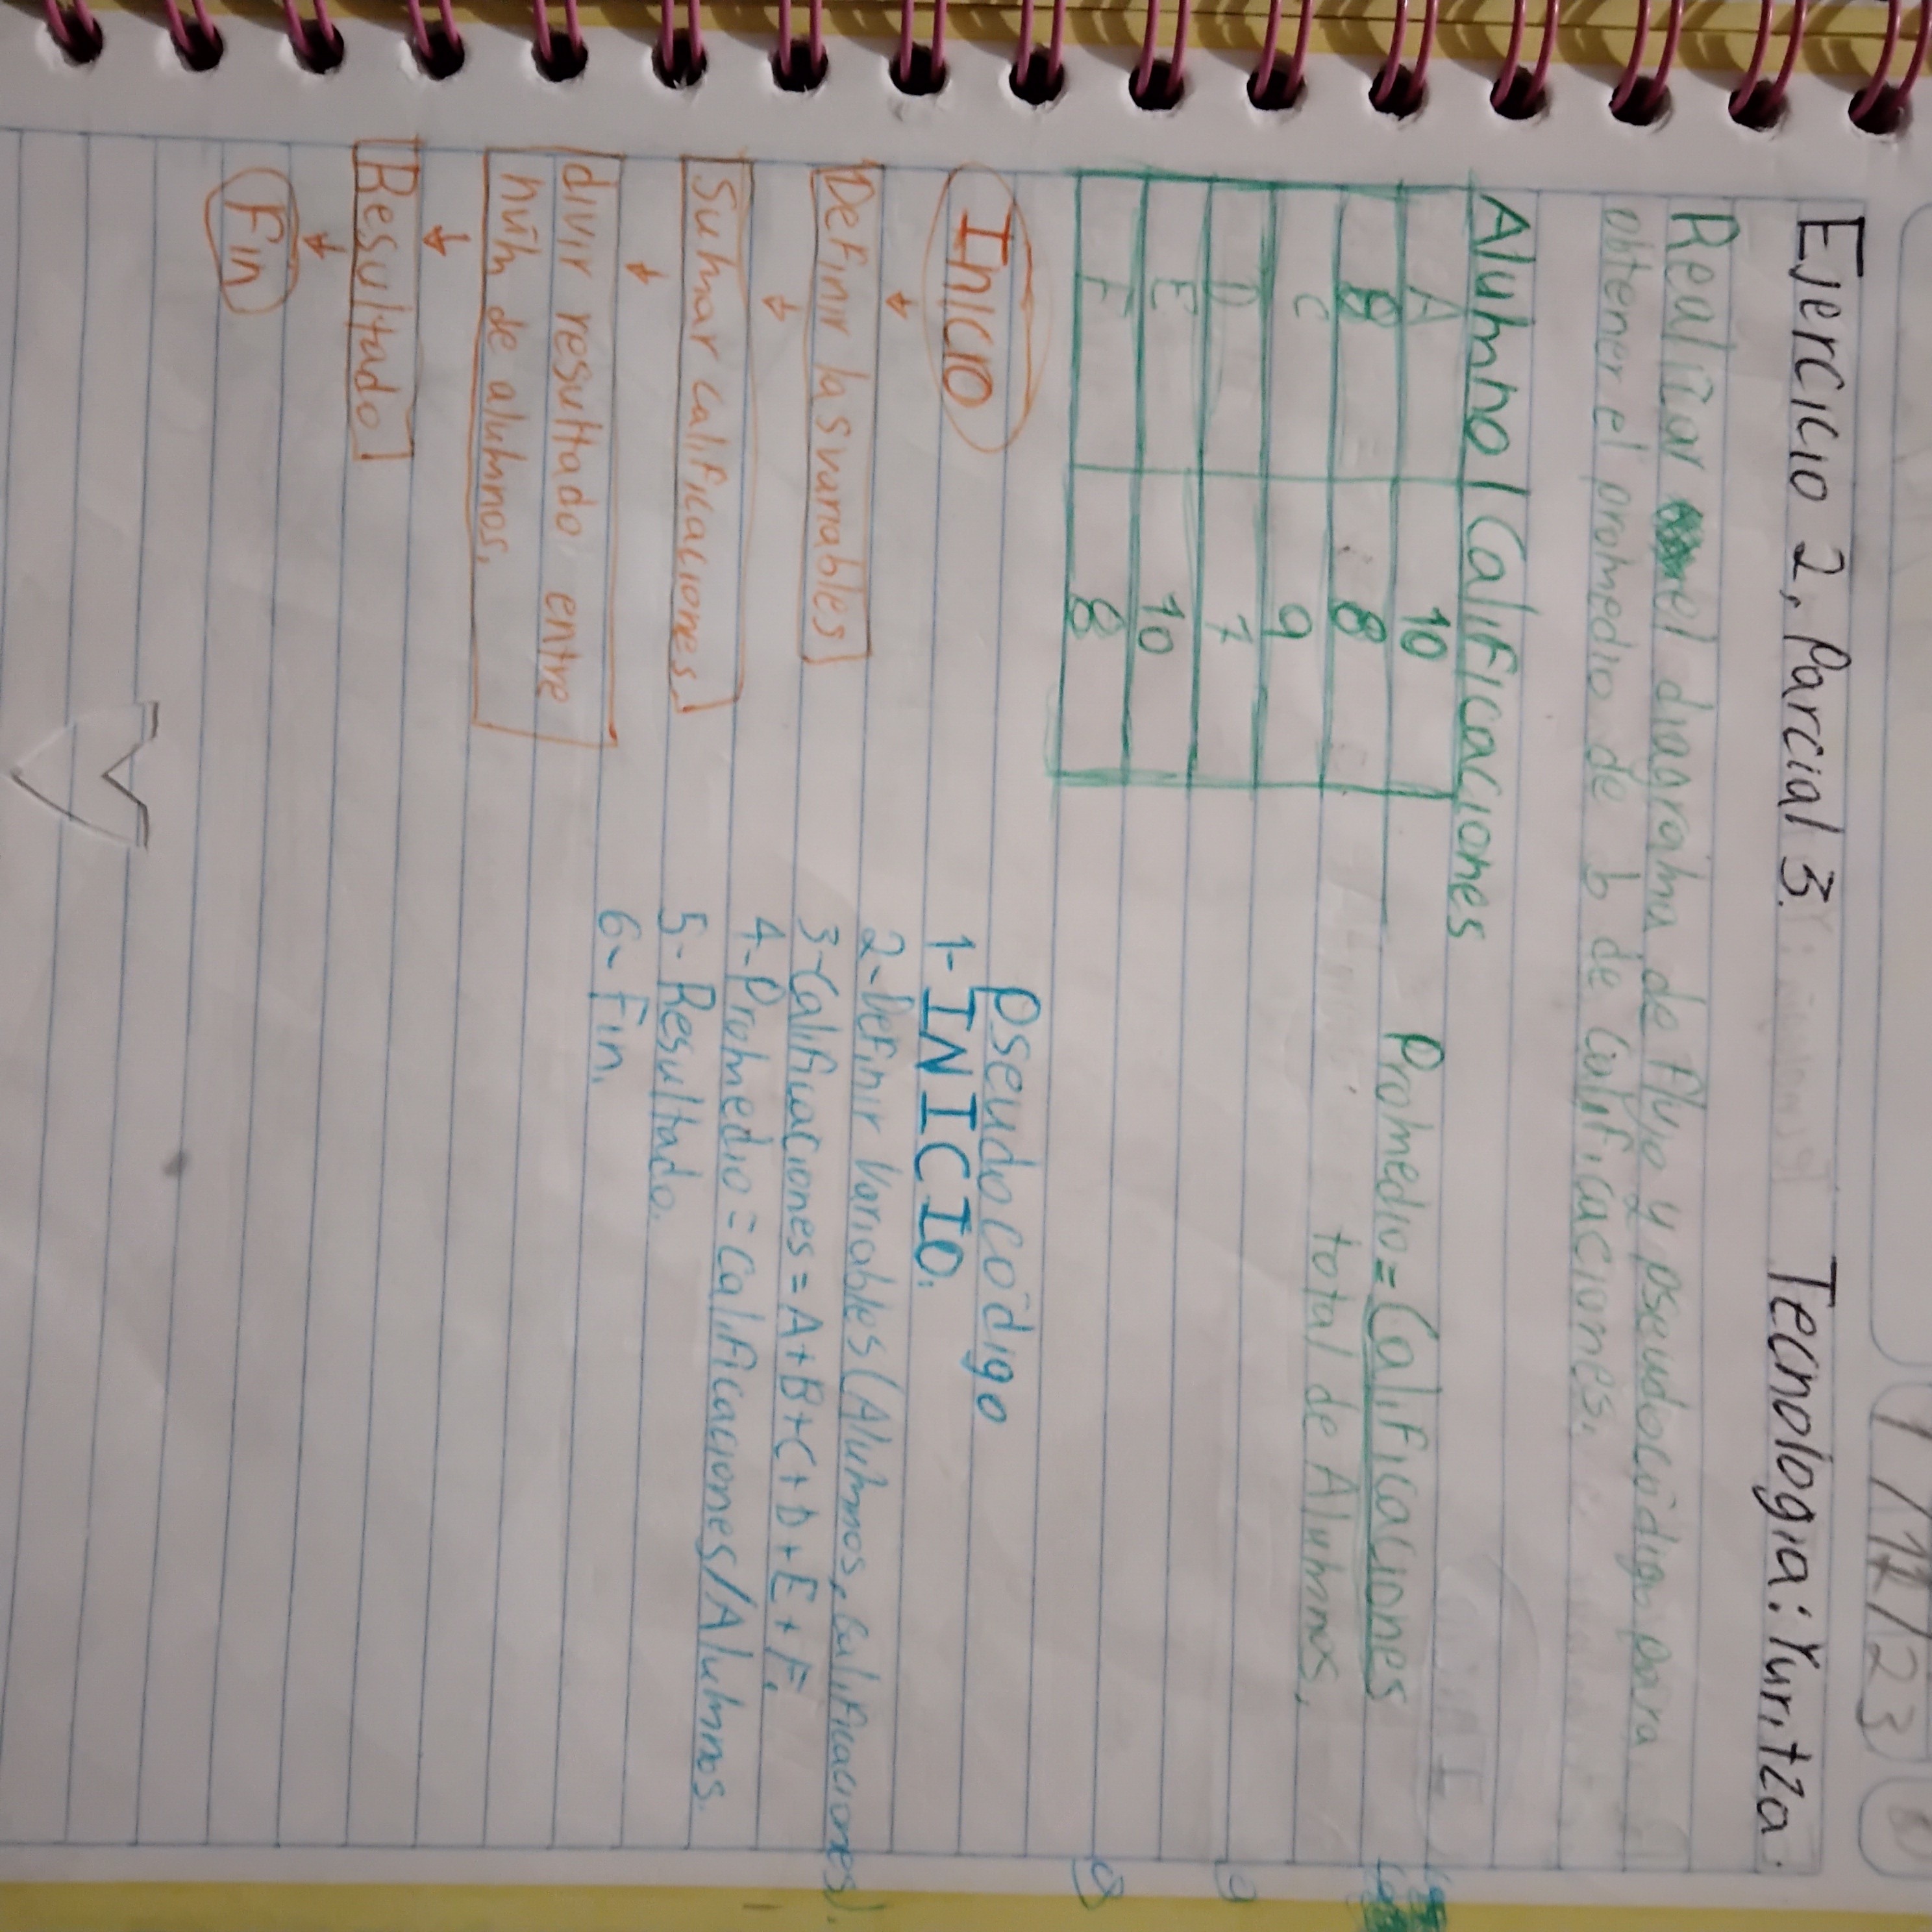 Ejercicio 2, Parcial 3. Tecnologia: Yuritza.
Realizar el diagrama de flujo y pseudocódigo para
obtener el promedio de 6 de Calificaciones.
Alumno | Calificaciones
A 10
B 8
C 9
D 7
E 10
F 8
Promedio = Calificaciones
total de Alumnos.
Inicio
Definir las variables
Sumar calificaciones.
divir resultado entre
núm de alumnos.
Resultado
Fin
Pseudocódigo
1- INICIO.
2- Definir Variables (Alumnos, calificaciones).
3- Calificaciones = A+B+C+D+E+F.
4- Promedio = Calificaciones/Alumnos.
5- Resultado.
6- Fin.